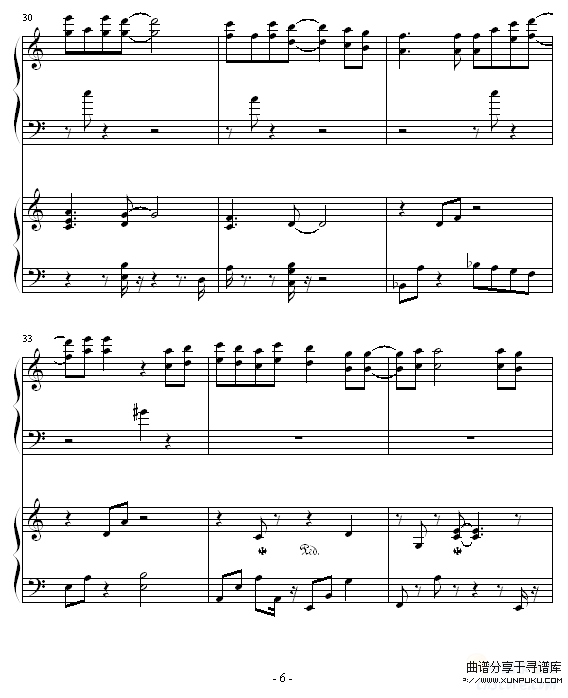 30
33
Ped.
- 6 -
曲谱分享于寻谱库
://www.xunpuku.com